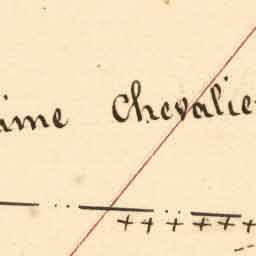 ime Chevalie